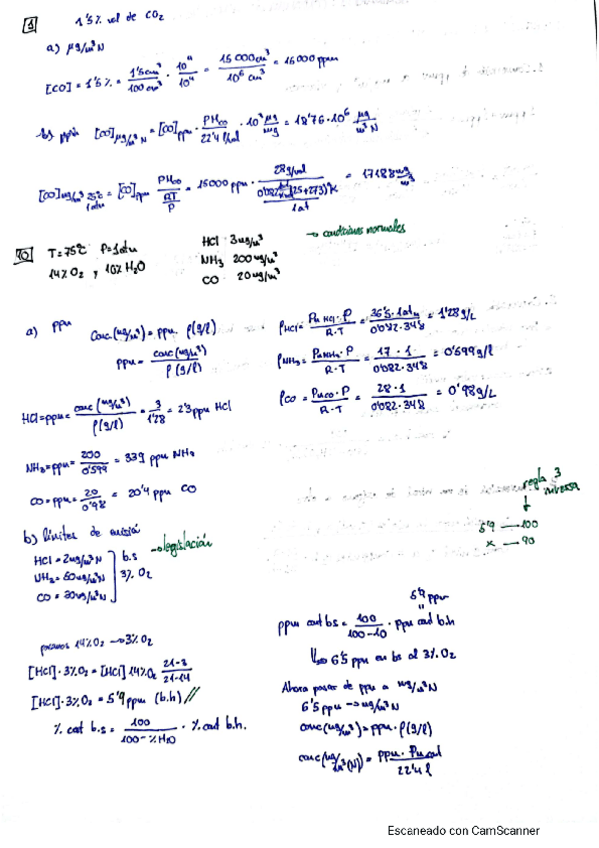 1 1'5% vol de CO₂
a) μg/m³N
[CO] = 1'5% = 1'5cm³/100cm³ · 10⁴/10⁴ = 15000cm³/10⁶ cm³ = 15000 ppm
b) ppm [CO]μg/m³N = [CO]ppm · PMco/22'4 l/mol · 10³ μg/mg = 18'76·10⁶ μg/m³N
[CO]mg/m³ 25ºC 1atm = [CO]ppm PMco/(RT/P) = 15000 ppm · 28g/mol / (0'082 (25+273)ºK / 1at) = 17188 mg/m³
10 T=75ºC P=1atm
14% O₂ y 10% H₂O
HCl 3mg/m³
NH₃ 200mg/m³
CO 20mg/m³
→ condiciones normales
a) ppm
Conc(mg/m³) = ppm · ρ(g/l)
ppm = conc(mg/m³)/ρ(g/l)
ρHCl = PmHCl·P/R·T = 36'5·1atm/0'082·348 = 1'28g/L
ρNH₃ = PmNH₃·P/R·T = 17·1/0'082·348 = 0'599g/l
ρCO = Pmco·P/R·T = 28·1/0'082·348 = 0'98g/L
HCl = ppm = conc(mg/m³)/ρ(g/l) = 3/1'28 = 2'3ppm HCl
NH₃ = ppm = 200/0'599 = 339 ppm NH₃
CO = ppm = 20/0'98 = 20'4 ppm CO
b) límites de emisión
→ legislación
HCl = 2mg/m³N
NH₃ = 50mg/m³N
CO = 30mg/m³N
b.s
3% O₂
regla 3
inversa
5'9 — 100
x — 90
pasamos 14%O₂ → 3%O₂
[HCl]·3%O₂ = [HCl] 14%O₂ 21-3/21-14
[HCl]·3%O₂ = 5'9ppm (b.h)
% cat b.s = 100/100-%H₂O · % cat b.h.
5'9 ppm
ppm cont bs = 100/100-10 · ppm cont b.h
6'5 ppm en bs al 3% O₂
Ahora pasar de ppm a mg/m³N
6'5 ppm → mg/m³N
conc(mg/m³) = ppm · ρ(g/l)
conc(mg/m³(N)) = ppm · Pm cont/22'4 l
Escaneado con CamScanner